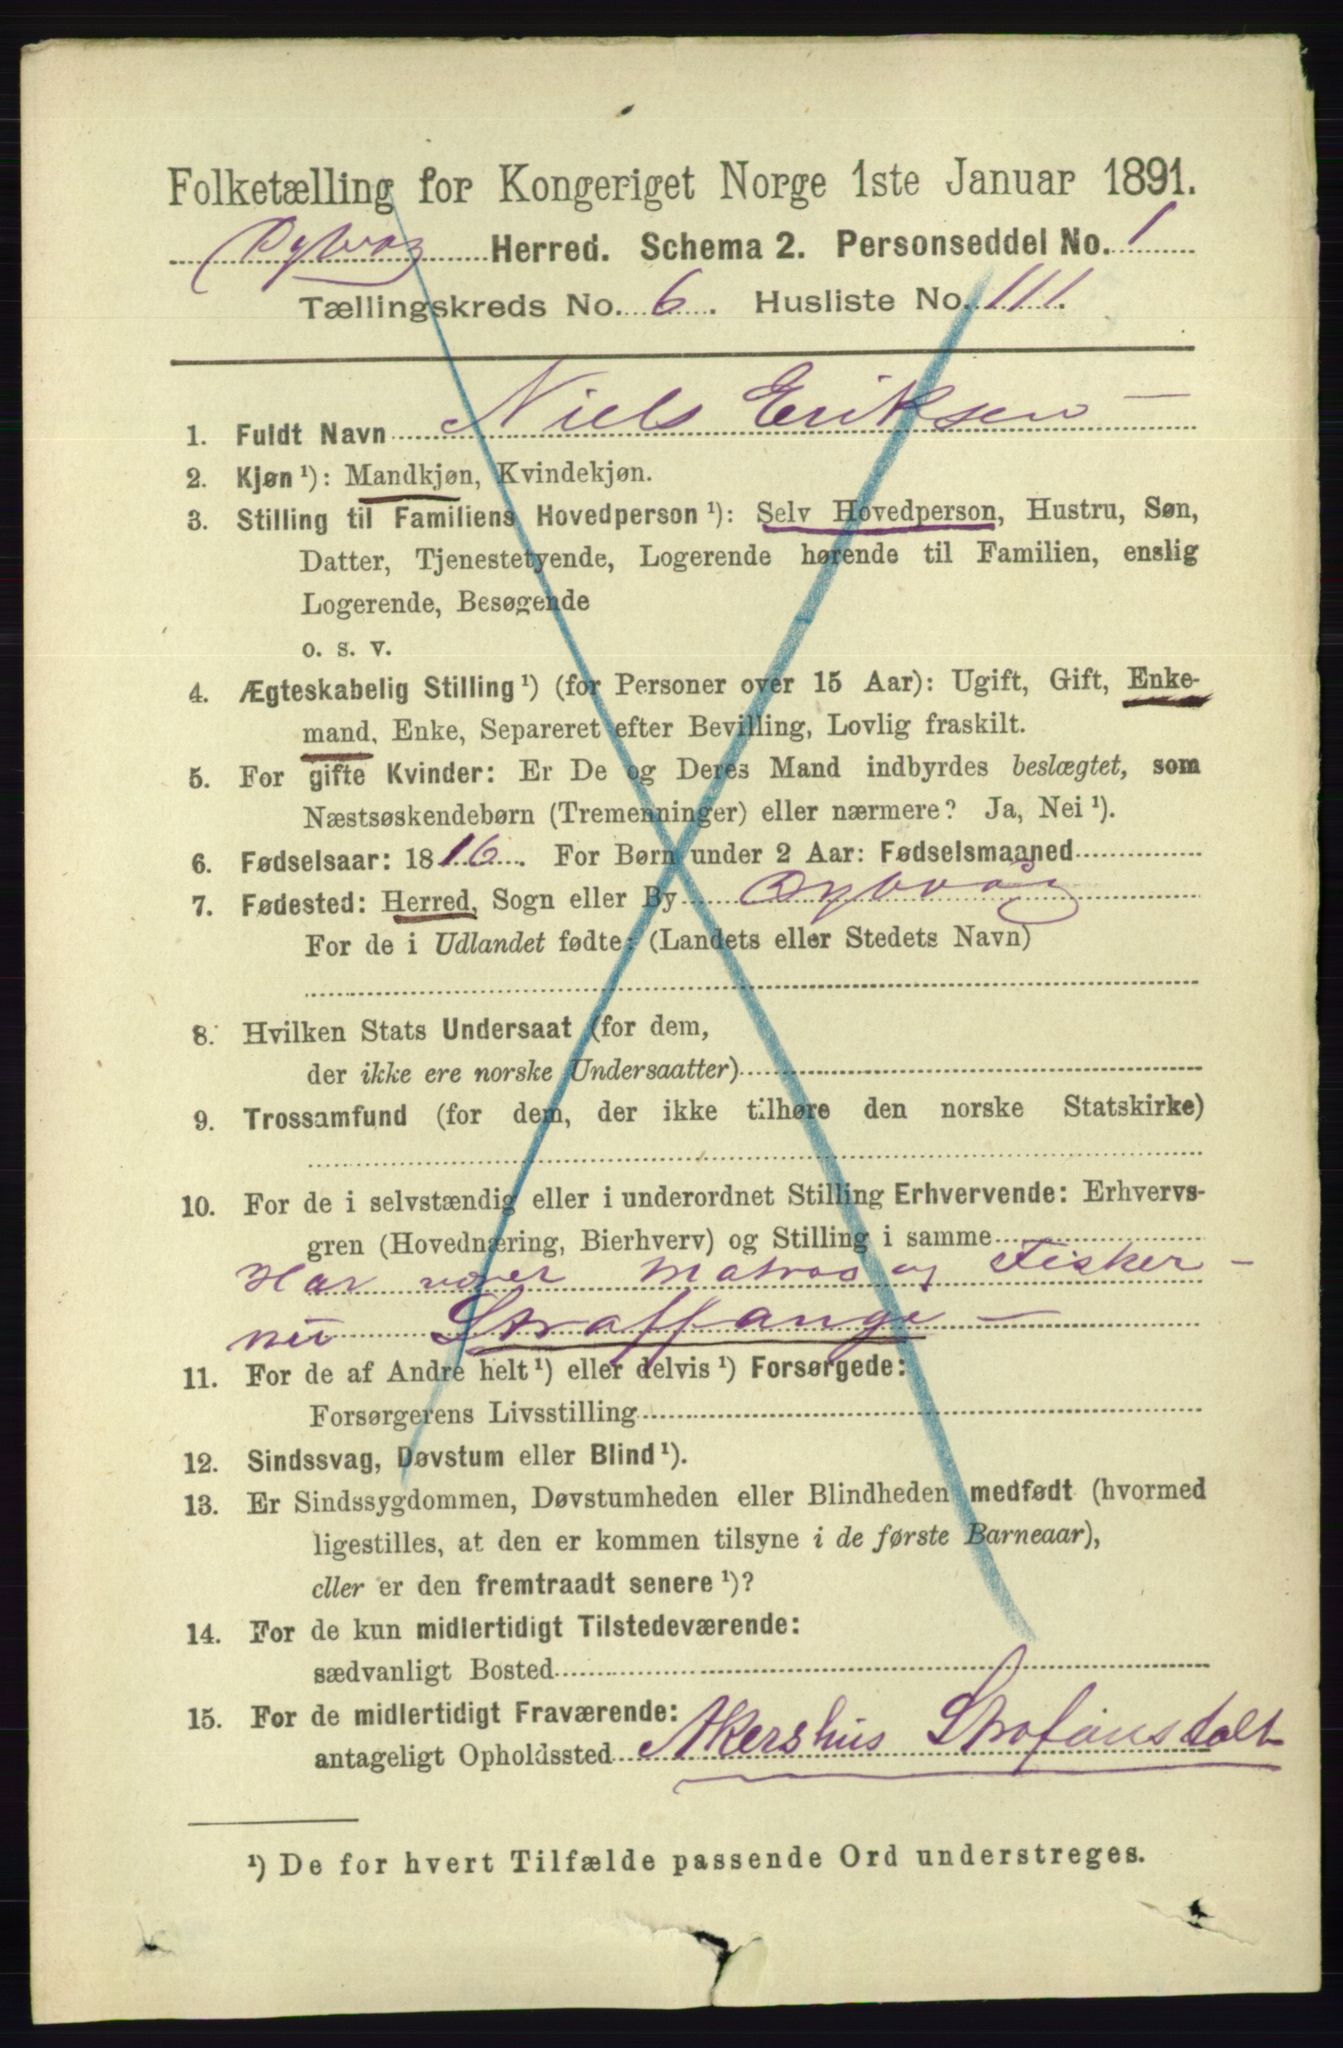 Folketælling for Kongeriget Norge 1ste Januar 1891.
Dybvaag Herred. Schema 2. Personseddel No. 1
Tællingskreds No. 6. Husliste No. 111.
1. Fuldt Navn Niels Eriksen —
2. Kjøn ¹): Mandkjøn, Kvindekjøn.
3. Stilling til Familiens Hovedperson ¹): Selv Hovedperson, Hustru, Søn,
Datter, Tjenestetyende, Logerende hørende til Familien, enslig
Logerende, Besøgende
o. s. v.
4. Ægteskabelig Stilling ¹) (for Personer over 15 Aar): Ugift, Gift, Enke-
mand, Enke, Separeret efter Bevilling, Lovlig fraskilt.
5. For gifte Kvinder: Er De og Deres Mand indbyrdes beslægtet, som
Næstsøskendebørn (Tremenninger) eller nærmere? Ja, Nei ¹).
6. Fødselsaar: 1816. For Børn under 2 Aar: Fødselsmaaned
7. Fødested: Herred, Sogn eller By Dybvåg
For de i Udlandet fødte: (Landets eller Stedets Navn)
8. Hvilken Stats Undersaat (for dem,
der ikke ere norske Undersaatter)
9. Trossamfund (for dem, der ikke tilhøre den norske Statskirke)
10. For de i selvstændig eller i underordnet Stilling Erhvervende: Erhvervs-
gren (Hovednæring, Bierhverv) og Stilling i samme
Har været Matros og Fisker —
nu Straffange —
11. For de af Andre helt ¹) eller delvis ¹) Forsørgede:
Forsørgerens Livsstilling
12. Sindssvag, Døvstum eller Blind ¹).
13. Er Sindssygdommen, Døvstumheden eller Blindheden medfødt (hvormed
ligestilles, at den er kommen tilsyne i de første Barneaar),
eller er den fremtraadt senere ¹)?
14. For de kun midlertidigt Tilstedeværende:
sædvanligt Bosted
15. For de midlertidigt Fraværende:
antageligt Opholdssted Akershus Strafanstalt
¹) De for hvert Tilfælde passende Ord understreges.